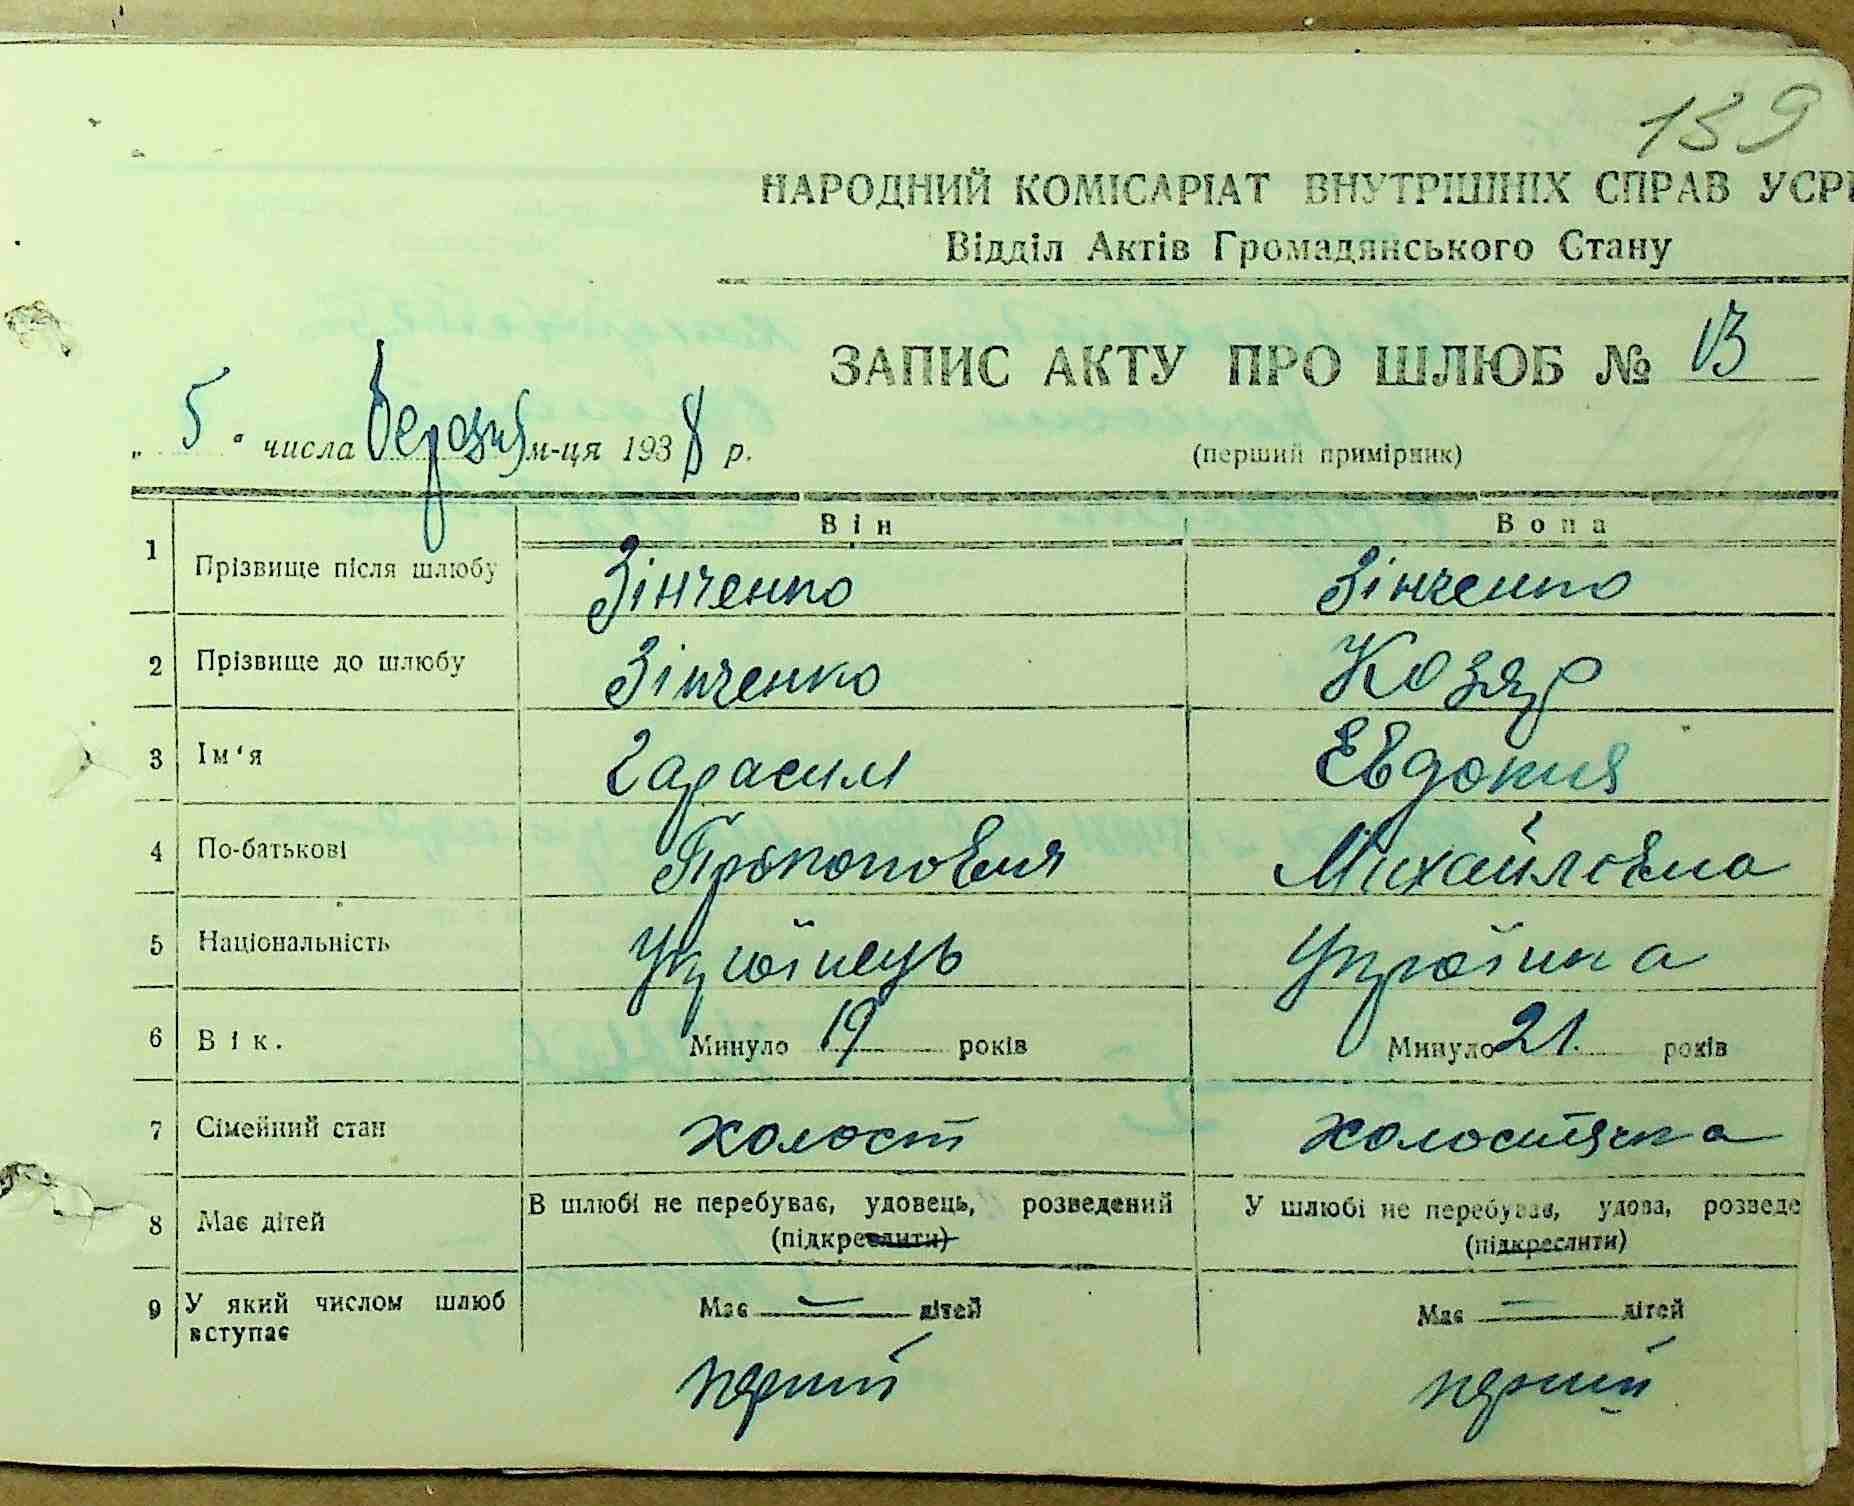 139
НАРОДНИЙ КОМІСАРІАТ ВНУТРІШНІХ СПРАВ УСРР
Відділ Актів Громадянського Стану
ЗАПИС АКТУ ПРО ШЛЮБ № 13
„ 5 " числа березня м-ця 1938 р.
(перший примірник)
Він Вона
1 Прізвище після шлюбу Зінченко Зінченко
2 Прізвище до шлюбу Зінченко Козяр
3 Ім'я Гарасим Евдокия
4 По-батькові Прокопович Михайловна
5 Національність Українець Українка
6 Вік. Минуло 19 років Минуло 21. років
7 Сімейний стан холост холостячка
8 Має дітей В шлюбі не перебуває, удовець, розведений У шлюбі не перебуває, удова, розведе
(підкреслити) (підкреслити)
9 У який числом шлюб Має — дітей Має — дітей
вступає
перший перший